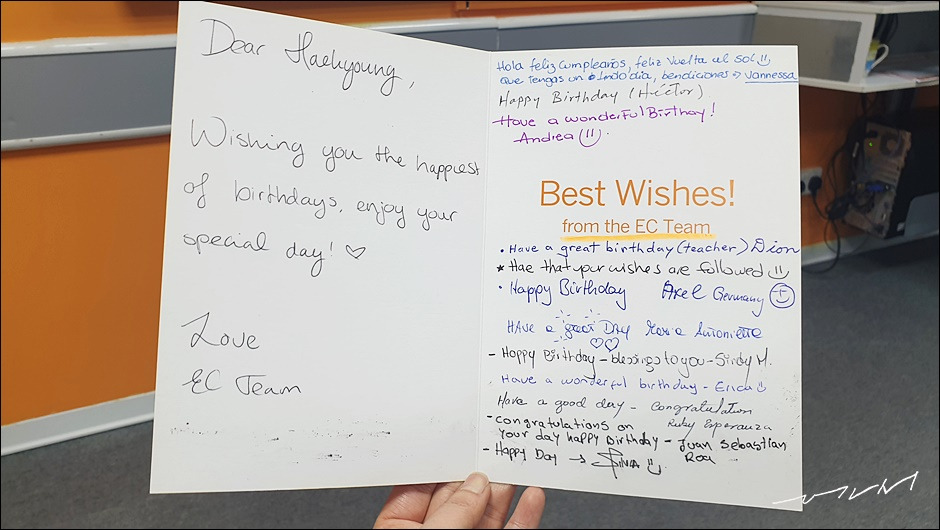 Dear Haekyoung,
Wishing you the happiest
of birthdays, enjoy your
special day! ♡
Love
EC Team
Hola feliz cumpleaños, feliz vuelta al sol
que tengas un lindo día, bendiciones → Vannessa
Happy Birthday (Héctor).
Have a wonderful Birthay!
Andrea
Best Wishes!
from the EC Team
• Have a great birthday (teacher) Dion
★ Hae that your wishes are followed
• Happy Birthday Axel Germany
HAVE a great DAY Maria Antonietta
- Happy Birthday - blessings to you - Sindy M.
Have a wonderful birthday - Erica
Have a good day - Congratulation
Ruby Esperanza
- congratulations on
your day happy Birthday - Juan Sebastian
Roa
- Happy Day → Silvia